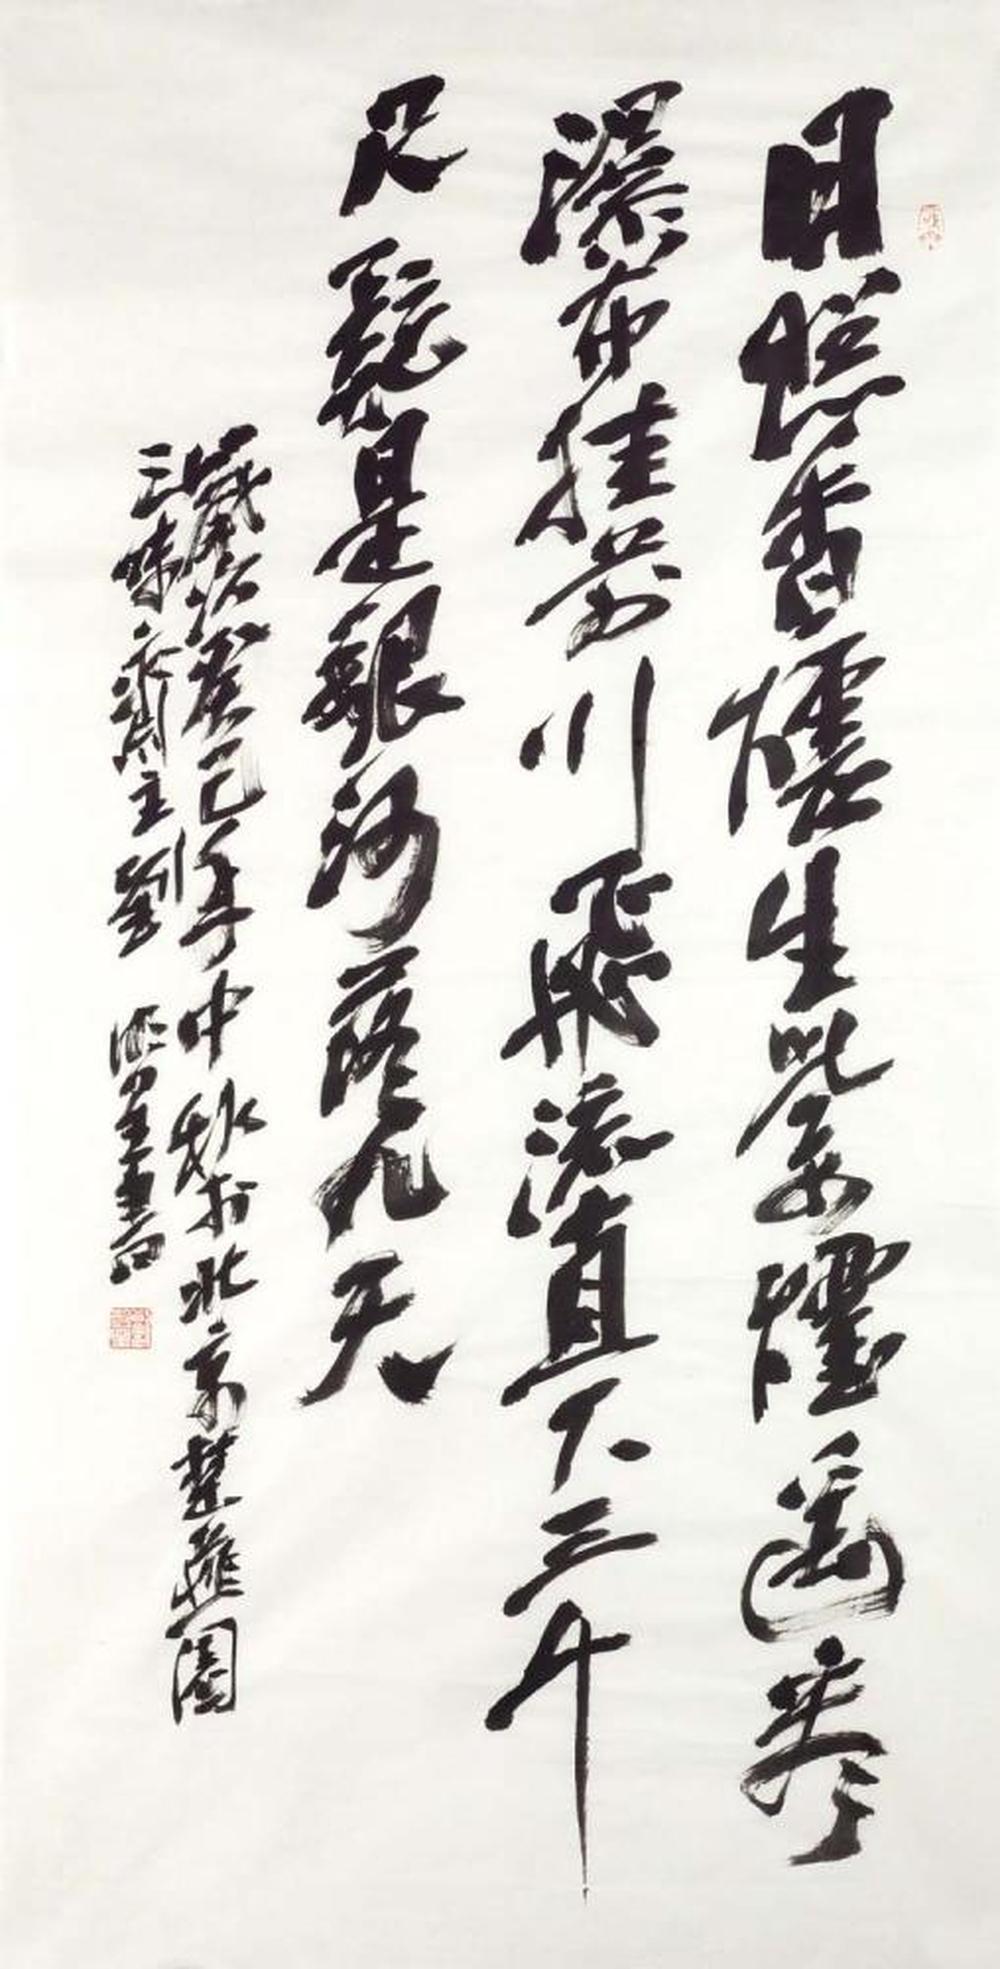 日照香爐生紫煙遙看
瀑布挂前川飛流直下三千
尺疑是銀河落九天
歲次癸巳年中秋於北京楚園
三味齋主劉